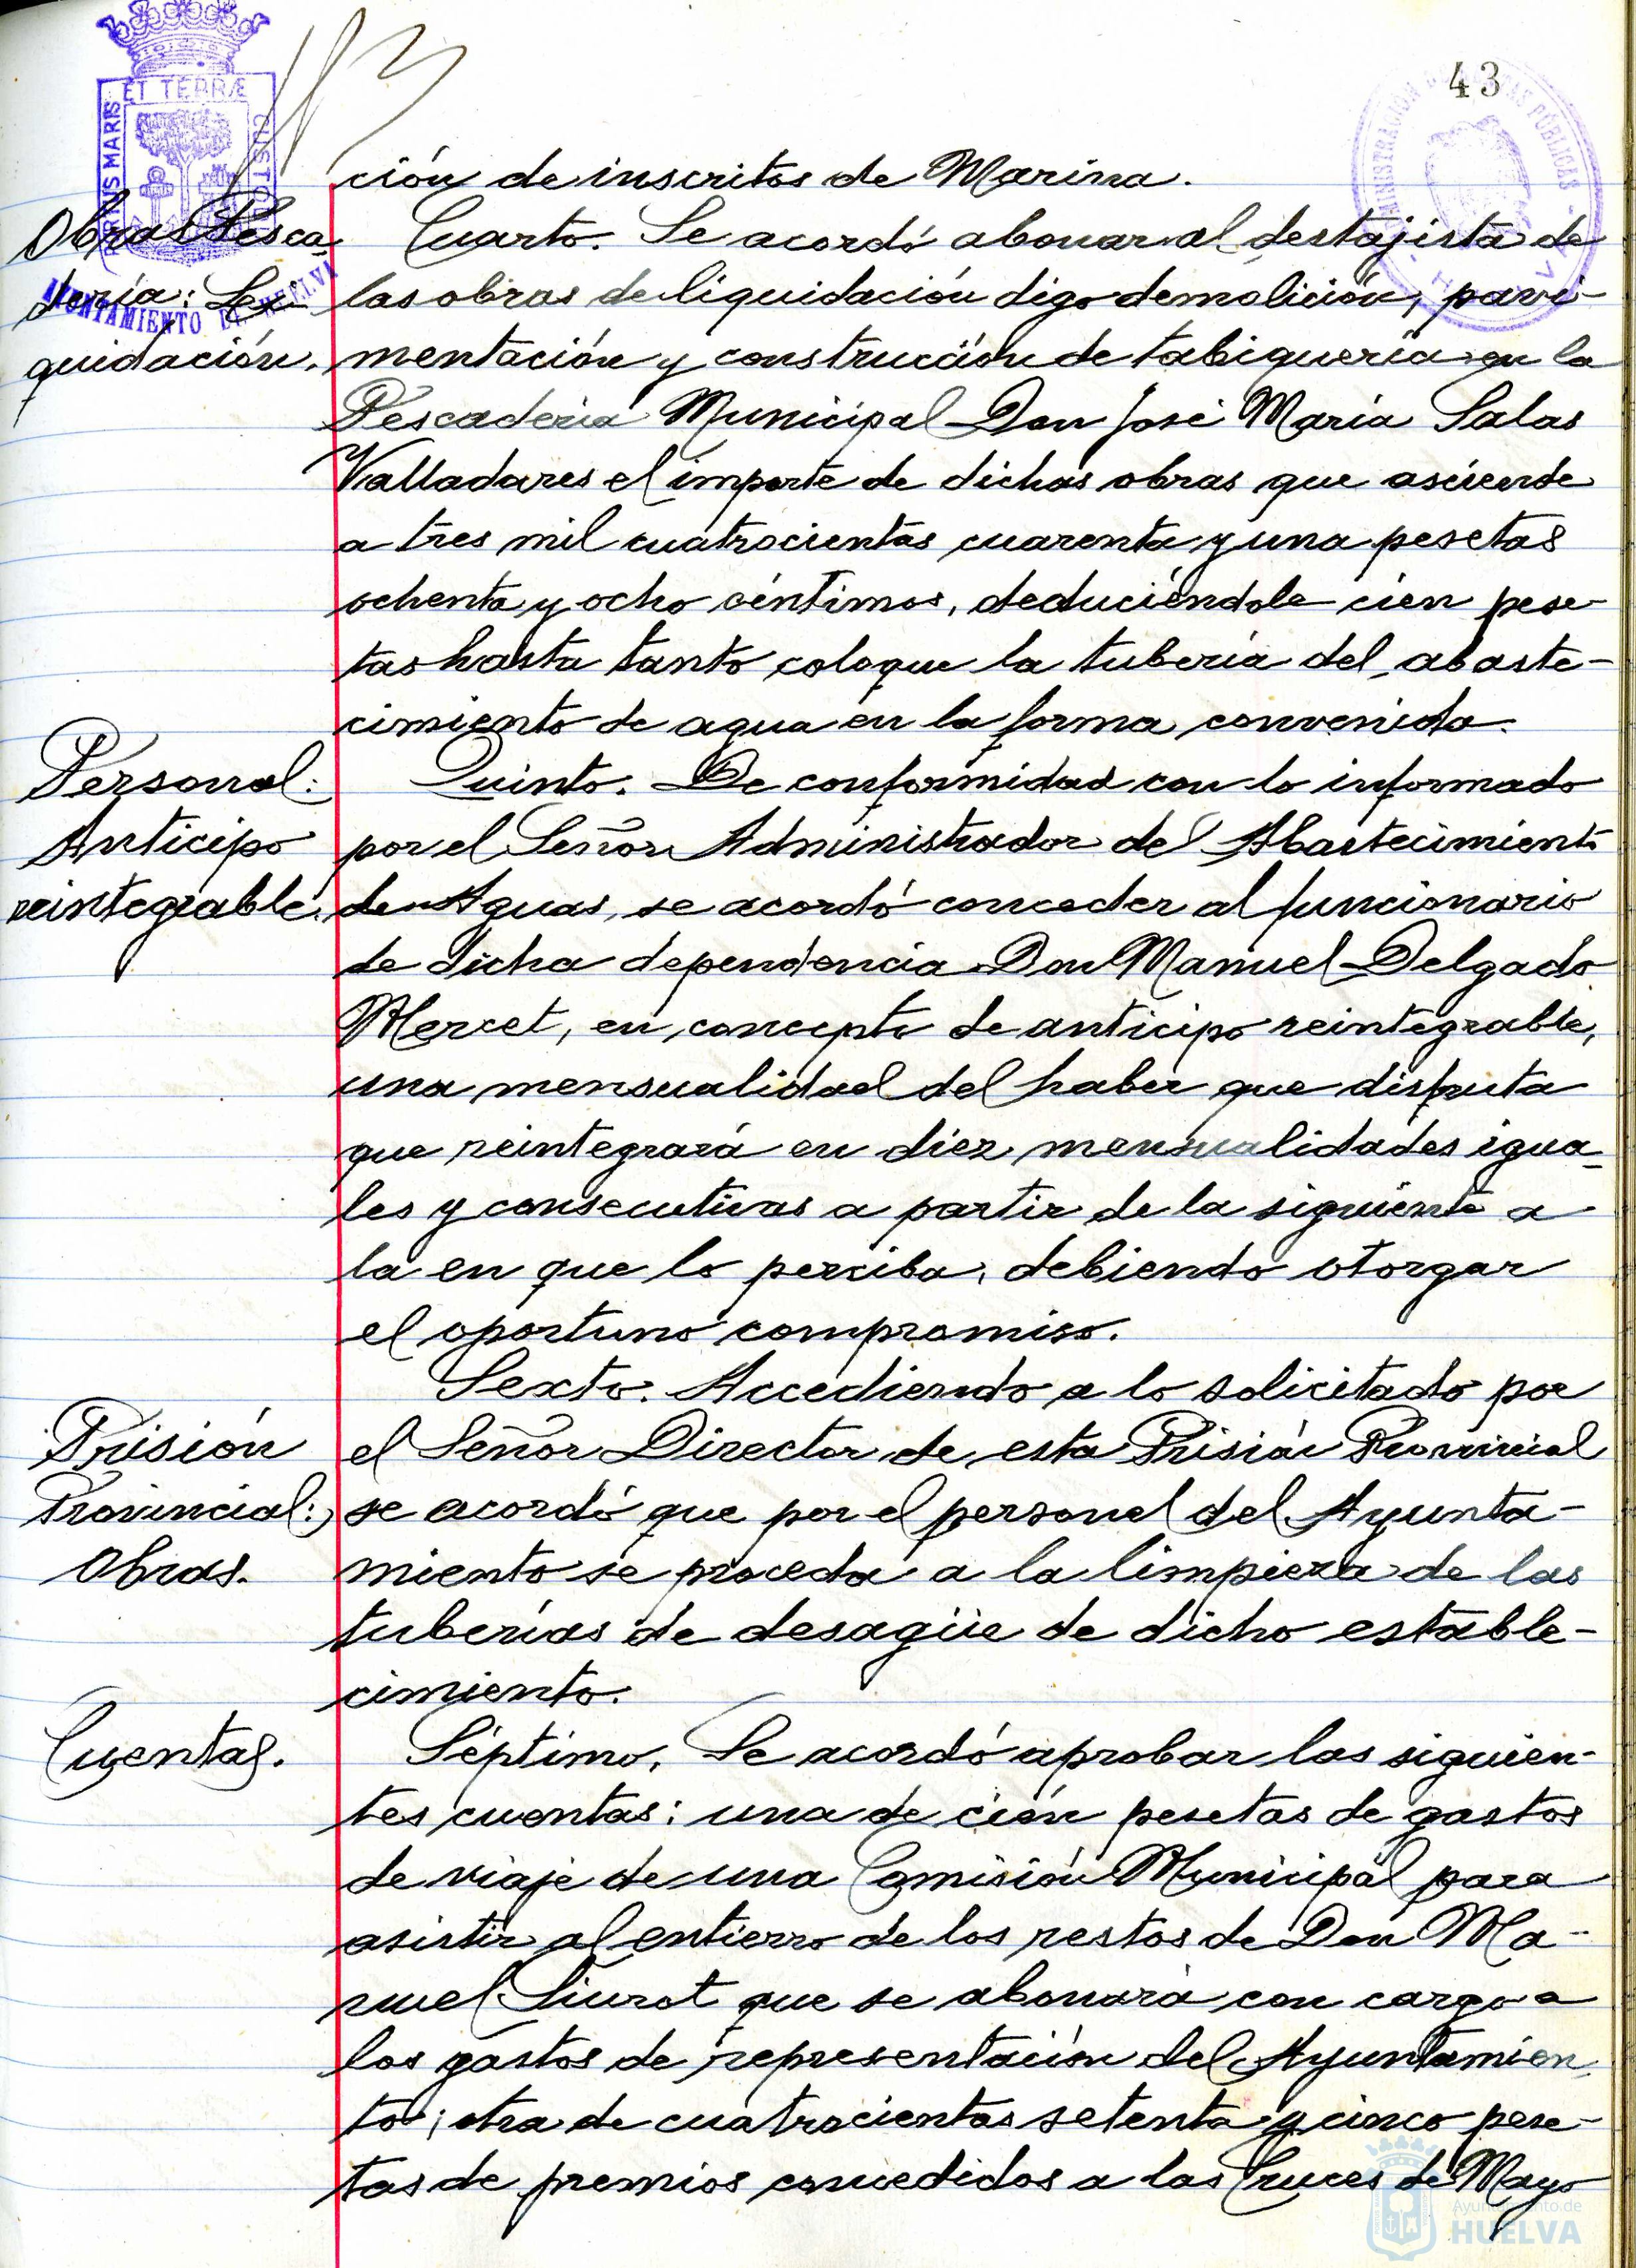 43
ET TERRÆ
PORTUS MARIS
CUSTODIA
AYUNTAMIENTO DE HUELVA
ción de inscritos de Marina.
Obras Pesca
dería: Li
quidación.
Cuarto. Se acordó abonar al destajista de
las obras de liquidación digo demolición, pavi-
mentación y construcción de tabiquería en la
Pescadería Municipal Don José María Salas
Valladares el importe de dichas obras que asciende
a tres mil cuatrocientas cuarenta y una pesetas
ochenta y ocho céntimos, deduciéndole cien pese-
tas hasta tanto coloque la tubería del abaste-
cimiento de agua en la forma convenida.
Personal:
Anticipo
reintegrable.
Quinto. De conformidad con lo informado
por el Señor Administrador del Abastecimiento
de Aguas, se acordó conceder al funcionario
de dicha dependencia Don Manuel Delgado
Mercet, en concepto de anticipo reintegrable,
una mensualidad del haber que disfruta
que reintegrará en diez mensualidades igua-
les y consecutivas a partir de la siguiente a
la en que lo perciba, debiendo otorgar
el oportuno compromiso.
Prisión
Provincial:
Obras.
Sexto. Accediendo a lo solicitado por
el Señor Director de esta Prisión Provincial
se acordó que por el personal del Ayunta-
miento se proceda a la limpieza de las
tuberías de desagüe de dicho estable-
cimiento.
Cuentas.
Séptimo. Se acordó aprobar las siguien-
tes cuentas: una de cien pesetas de gastos
de viaje de una Comisión Municipal para
asistir al entierro de los restos de Don Ma-
nuel Siurot que se abonará con cargo a
los gastos de representación del Ayuntamien
to; otra de cuatrocientas setenta y cinco pese-
tas de premios concedidos a las Cruces de Mayo
Ayuntamiento de
HUELVA